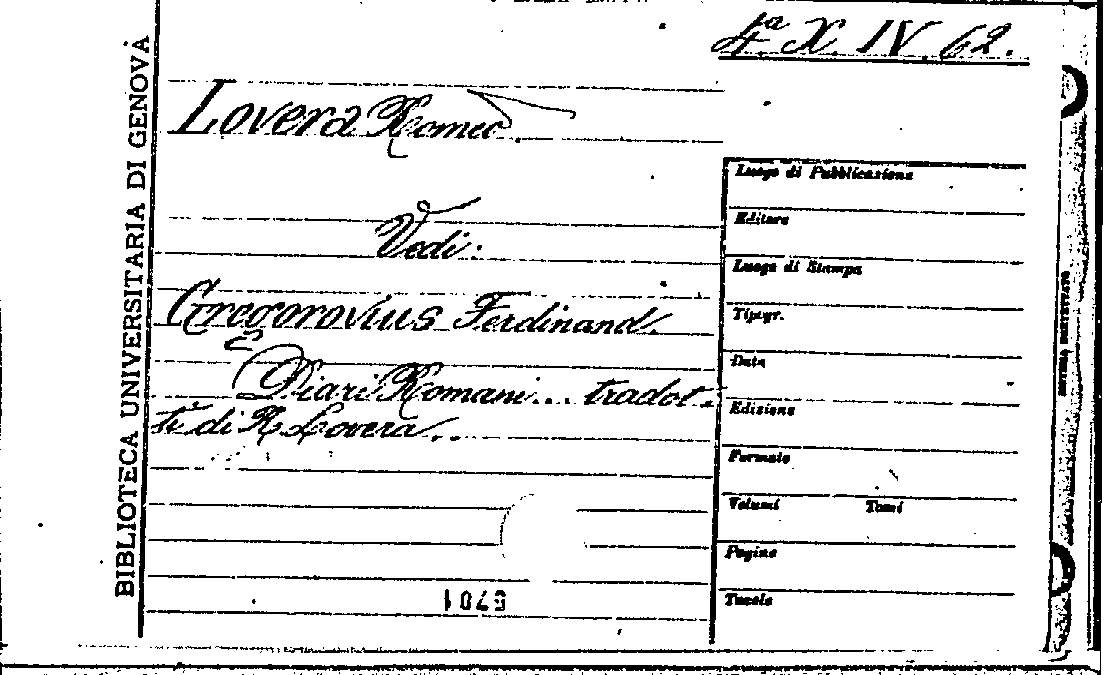 4ª X. IV. 62.
BIBLIOTECA UNIVERSITARIA DI GENOVA
Lovera Romeo.
Vedi:
Gregorovius Ferdinand.
Diari Romani... tradot-
ti di R. Lovera..
Luogo di Pubblicazione
Editore
Luogo di Stampa
Tipogr.
Data
Edizione
Formato
Volumi Tomi
Pagine
Tavole